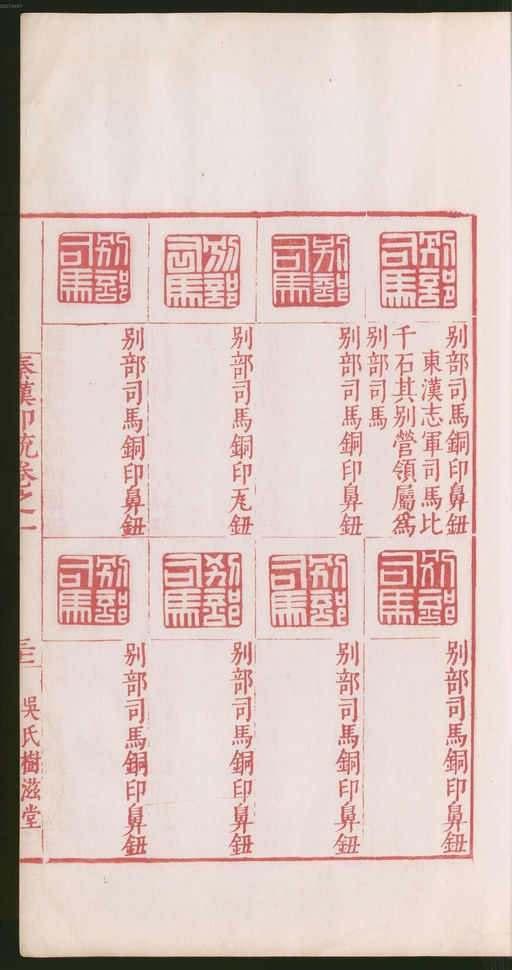 00073467
別部司馬
別部司馬銅印鼻鈕
東漢志軍司馬比
千石其別營領屬爲
別部司馬
別部司馬
別部司馬銅印鼻鈕
別部司馬
別部司馬銅印瓦鈕
別部司馬
別部司馬銅印鼻鈕
別部司馬
別部司馬銅印鼻鈕
別部司馬
別部司馬銅印鼻鈕
別部司馬
別部司馬銅印鼻鈕
別部司馬
別部司馬銅印鼻鈕
秦漢印統卷之一
吳氏樹滋堂